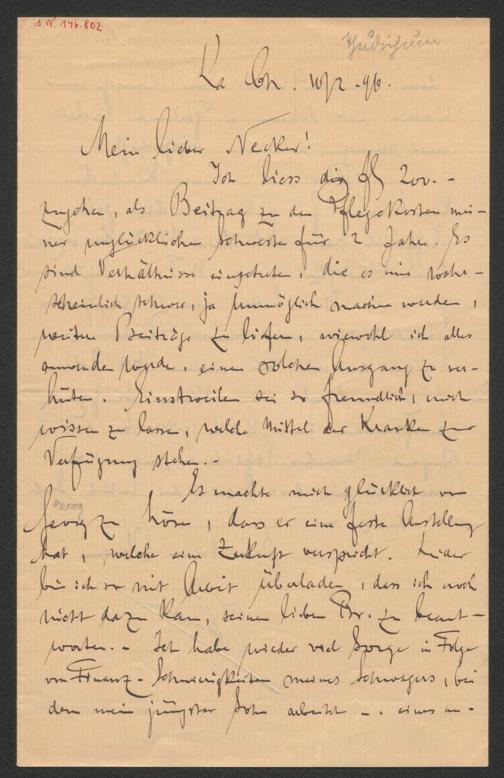 J.N. 146.802
Thudichum
Mein lieber Necker!
Ich liess dir fl 200.-
zugehen, als Beitrag zu den Pflegekosten mei-
ner unglücklichen Schwester für 2 Jahre. Es
sind Verhältnisse eingetreten, die es mir wahr-
scheinlich schwer, ja unmöglich machen werden,
weitere Beiträge zu liefern, wiewohl ich alles
anwenden werde, einen solchen Ausgang zu ver-
hüten. Einstweilen sei so freundlich, mich
wissen zu lassen, welche Mittel der Kranken zur
Verfügung stehen.
Es machte mich glücklich von
Georg
Georg zu hören, dass er eine feste Anstellung
hat, welche eine Zukunft verspricht. Leider
bin ich so mit Arbeit überladen, dass ich noch
nicht dazu kam, seinen lieben Br. zu beant-
worten. - Ich habe wieder viel Sorge in Folge
von Finanz-Schwierigkeiten meines Schwagers, bei
dem mein jüngster Sohn arbeitet -. eines an-